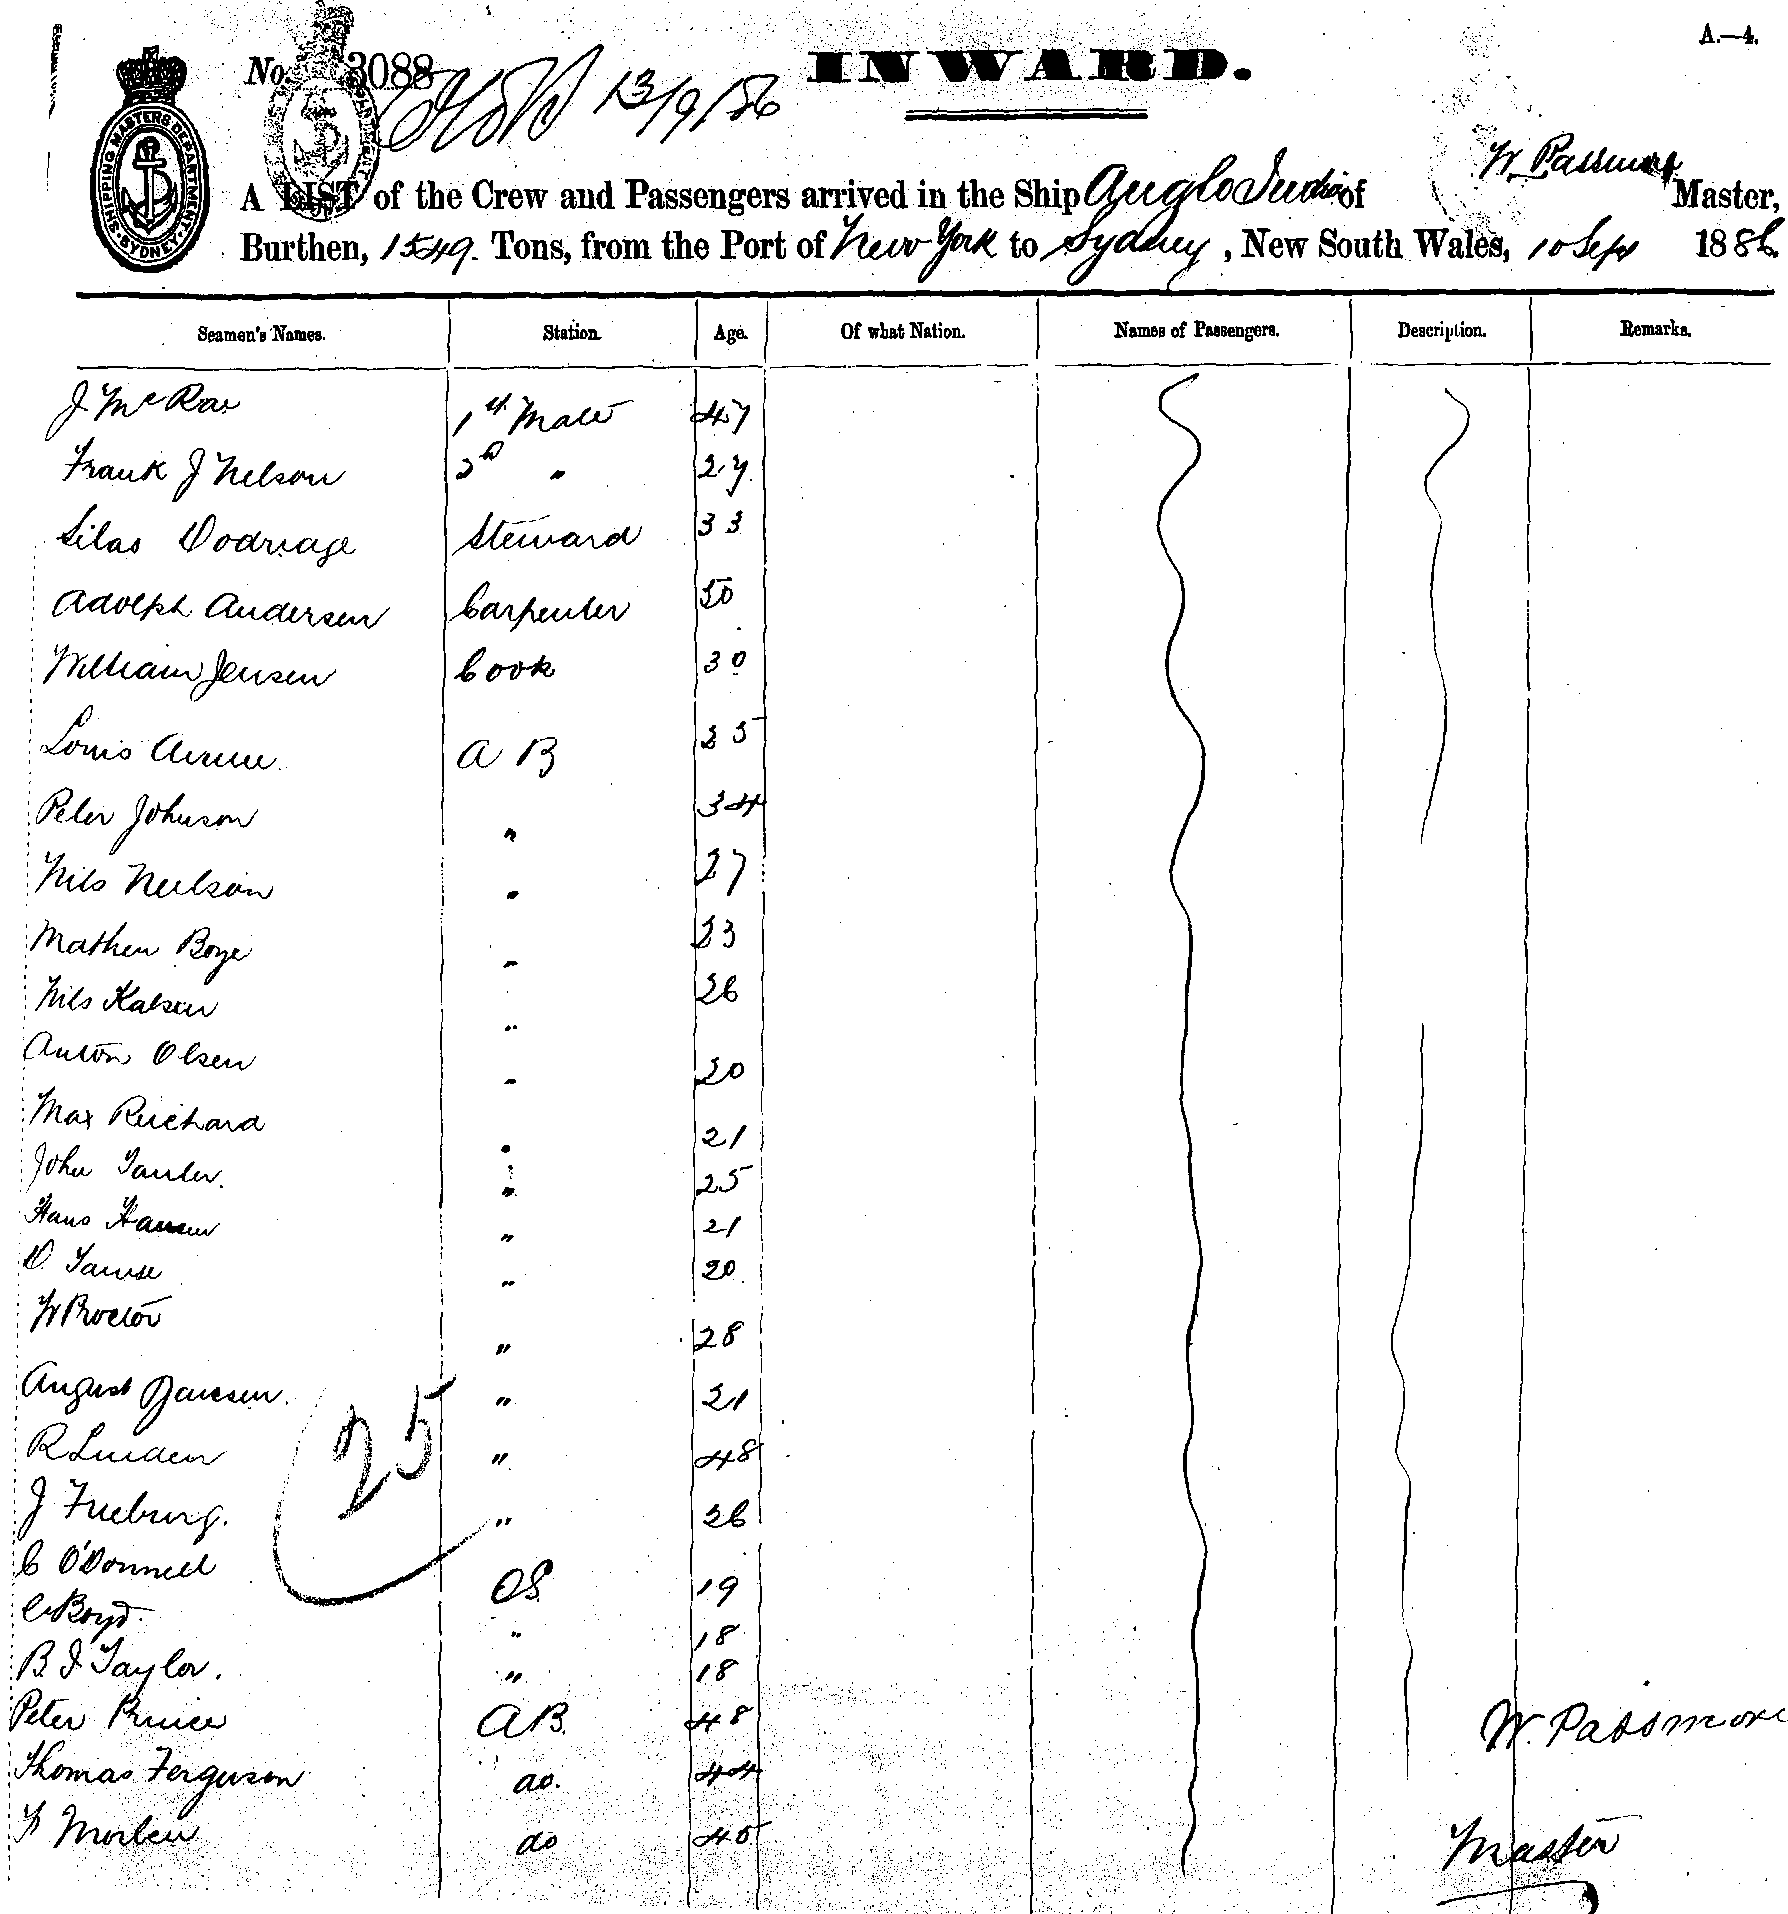 A.—4.
No. 3088
13/9/86
INWARD.
SHIPPING MASTERS DEPARTMENT. SYDNEY.
W. Passmore
A LIST of the Crew and Passengers arrived in the Ship Anglo India of Master,
Burthen, 1549. Tons, from the Port of New York to Sydney, New South Wales, 10 Sept 1886
Seamen's Names. Station. Age. Of what Nation. Names of Passengers. Description. Remarks.
J McRae 1st Mate 47
Frank J Nelson 2d " 27
Silas Dodridge Steward 33
Adolph Andersen Carpenter 50
William Jensen Cook 30
Louis A B 25
Peter Johnson " 34
Nils Neilson " 27
Mathew Boye " 23
Nils Kalsen " 26
Anton Olsen " 20
Max Reichard " 21
John " 25
Hans Hansen " 21
D. " 20
W Proctor " 28
August Janssen. " 21
R Linden " 48
J Freeburg. " 26
C O'Donnell OS 19
C Boyd. " 18
B. J Taylor. " 18
Peter Prince A B. 48 W. Passmore
Thomas Ferguson do. 44
do 45 Master
25